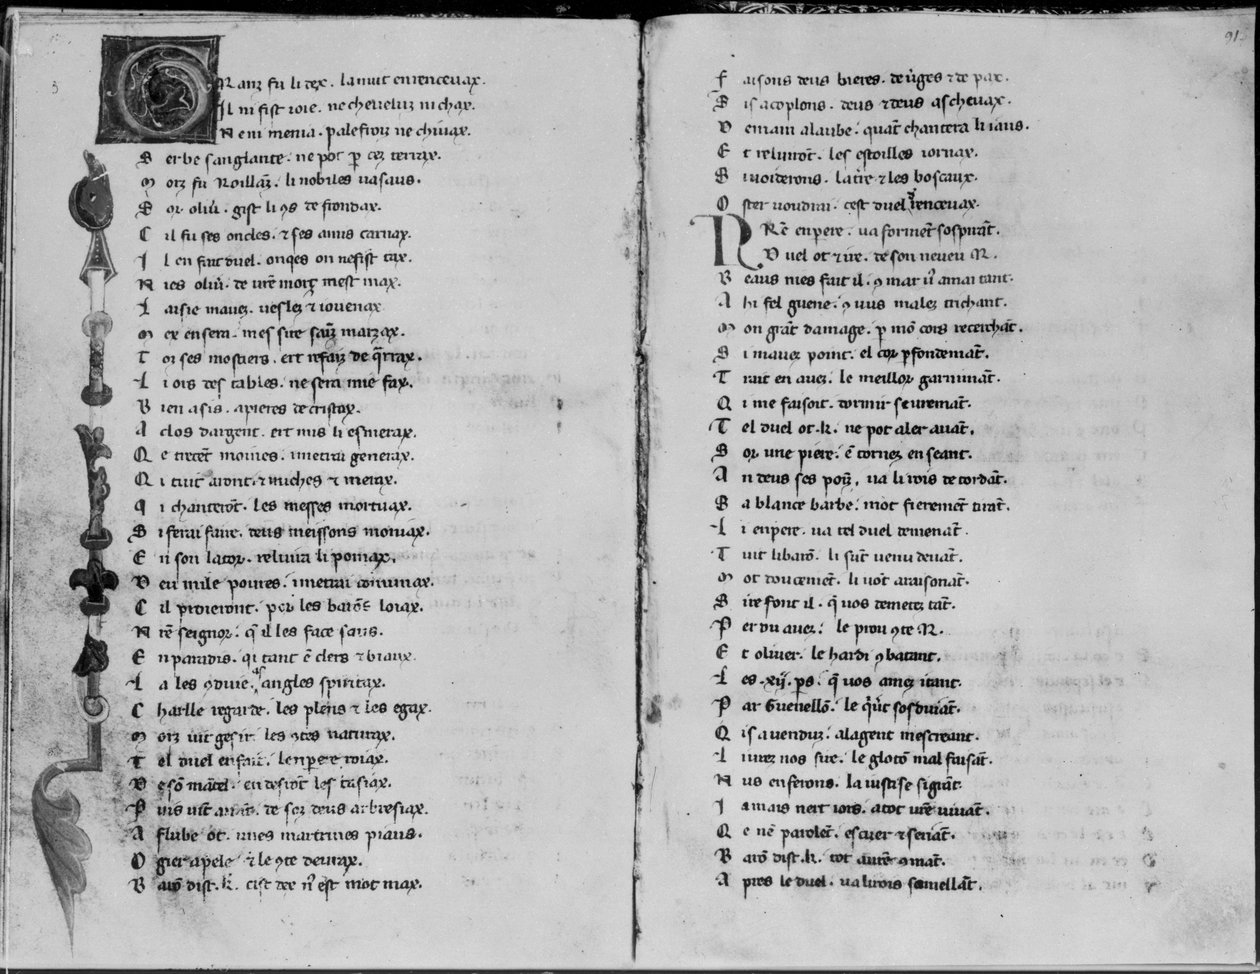 GRanz fu li dex . la nuit en rencevax.
Il ni fist ioie . ne chevelux ni chax.
Neni mema . palefroiz ne chivax.
Serbe sanglante . ne pot p cez terrax.
Morz fu Rollãz . li nobiles vasaus.
Sor oliũ . gist li 9s de frondax.
Cil fu ses oncles . ⁊ ses amis carnax.
Il en fait duel . onqes on ne fist tax.
Nies oliũ . de vr̃e mort mest max.
Laisie mavez . ves lez ⁊ iovenax
Mex en sera . mes sire
Toz ses mostiers . ert refaiz de
Li ois des tables . ne sera mie fax.
Bien asis . a pieres de cristax.
A clos dargent . ert mis li esmerax.
Qe trecēt moines . i metrai generax.
Qi tuit auront . ⁊ miches ⁊ merax.
Qi chanterōt . les messes mortuax.
Si ferai faire . deus meissons moniax.
En son lator . reluira li pomax.
Deu mile poires . i metrai cōmunax.
Cil proieront . por les barōs loiax.
Nr̃e seignor . q̃ il les face saus.
En paradis . qi tant ē clers ⁊ biaux.
La les 9duie . angles spiritax.
Charlle regarde . les pleins ⁊ les egax.
Morz vit gesir . les 9tes naturax.
Tel duel en fait . lenperere roiax.
De sō mātel . en desirōt les tasiax.
Puis vint auāt . de soz deus arbresiax.
Aflube ot . unes martrines piaus.
Ogier apele . ⁊ le 9te deurax.
Barō dist . k . cist dex nr̃ est mot max.
91
Faisons deus bieres . de ṽges ⁊ de pax.
Sis acoplons . deus ⁊ deus as chevax.
Demain a laube . quāt chantera li iaus.
Et reluirōt . les estoilles iornax.
Si voiderons . la t̃re ⁊ les boscaux.
Oster voudrai . cest duel rencevax.
REē enpere . va formēt sospirāt.
Duel ot ⁊ ire . de son neveu R.
Beaus nies fait il . 9 mar vꝰ amai tant.
Ahi fel guene . 9 vus malez trichant.
Mon grāt damage . p mō cors recerchāt.
Si mavez point . el cor pfondemāt.
Trait en avez . le meillor garnimāt.
Qi me faisoit . dormir seuremāt.
Tel duel ot . k . ne pot aler avāt.
Sor une piere . ē tornez en seant.
An deus ses poīz . va li rois detordāt.
Sa blance barbe . mōt fierement tirāt.
Li enpere . va tel duel demenāt.
Tuit li barō . li sūt venu devāt.
Mot doucemēt . li vōt araisonāt.
Sire font il . q̃ vos demetez tāt.
Perdu avez . le prou 9te R.
Et oliver . le hardi 9batant.
Les .xij. ps . q̃ vos amez itant.
Par Guenellō . le q̃vt sosduiāt.
Qis a venduz . a la gent mescreant.
Livrez nos sire . le glotō mal faisāt.
Nus en ferons . la iustise si grāt.
Iamais nert iors . a tot vr̃e vivāt.
Qe nē parolēt . escuer ⁊ seriāt.
Barō dist . k . tot aurēz 9māt.
Apres le duel . va li rois somellāt.